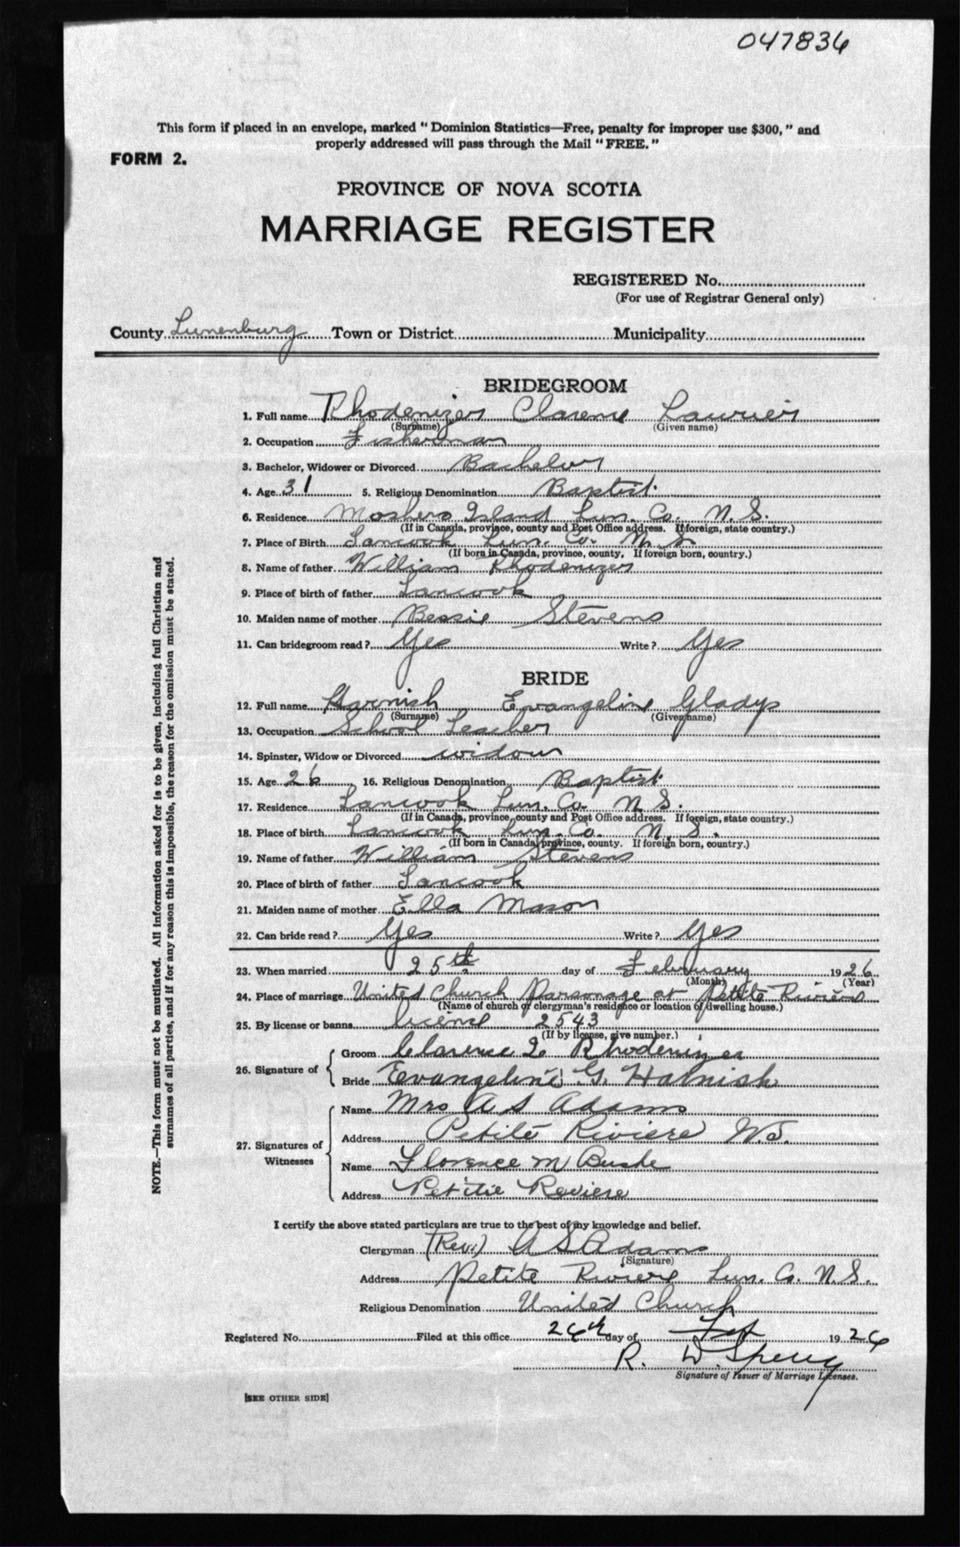 047836
This form if placed in an envelope, marked "Dominion Statistics—Free, penalty for improper use $300," and
properly addressed will pass through the Mail "FREE."
FORM 2.
PROVINCE OF NOVA SCOTIA
MARRIAGE REGISTER
REGISTERED No.
(For use of Registrar General only)
County Lunenburg Town or District Municipality
BRIDEGROOM
1. Full name Rhodenizer Clarence Laurier
(Surname) (Given name)
2. Occupation Fisherman
3. Bachelor, Widower or Divorced Bachelor
4. Age 31 5. Religious Denomination Baptist
6. Residence Moshers Island Lun. Co. N.S.
(If in Canada, province, county and Post Office address. If foreign, state country.)
7. Place of Birth Tancook Lun. Co. N.S.
(If born in Canada, province, county. If foreign born, country.)
8. Name of father William Rhodenizer
9. Place of birth of father Tancook
10. Maiden name of mother Bessie Stevens
11. Can bridegroom read? Yes Write? Yes
BRIDE
12. Full name Harnish Evangeline Gladys
(Surname) (Given name)
13. Occupation School Teacher
14. Spinster, Widow or Divorced widow
15. Age 26 16. Religious Denomination Baptist
17. Residence Tancook Lun. Co. N.S.
(If in Canada, province, county and Post Office address. If foreign, state country.)
18. Place of birth Tancook Lun. Co. N.S.
(If born in Canada, province, county. If foreign born, country.)
19. Name of father William Stevens
20. Place of birth of father Tancook
21. Maiden name of mother Ella Mason
22. Can bride read? Yes Write? Yes
23. When married 25th day of February 1926
(Month) (Year)
24. Place of marriage United Church Parsonage at Petite Riviere
(Name of church or clergyman's residence or location of dwelling house.)
25. By license or banns licence 2543
(If by license, give number.)
26. Signature of
Groom Clarence L Rhodenizer
Bride Evangeline G. Harnish
27. Signatures of Witnesses
Name Mrs A S Adams
Address Petite Riviere N.S.
Name Florence M Bushe
Address Petite Reviere
I certify the above stated particulars are true to the best of my knowledge and belief.
Clergyman (Rev.) A S Adams
(Signature)
Address Petite Riviere Lun. Co. N.S.
Religious Denomination United Church
Registered No. Filed at this office 26th day of Feb 1926
R. W. Sperry
Signature of Issuer of Marriage Licenses.
[SEE OTHER SIDE]
NOTE.—This form must not be mutilated. All information asked for is to be given, including full Christian and
surnames of all parties, and if for any reason this is impossible, the reason for the omission must be stated.